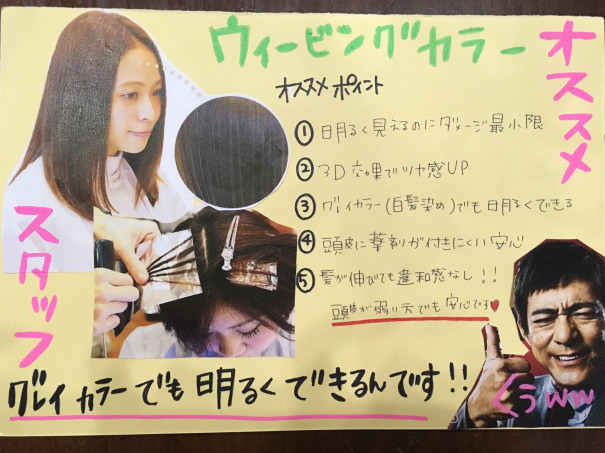 ウィービングカラー
オススメ
オススメ ポイント
① 明るく見えるのにダメージ最小限
② 3D効果でツヤ感UP
③ グレイカラー(白髪染め)でも明るくできる
④ 頭皮に薬剤が付きにくい安心
⑤ 髪が伸びても違和感なし!!
頭皮が弱い方でも安心です♥
スタッフ
グレイカラーでも明るくできるんです!!
くぅww